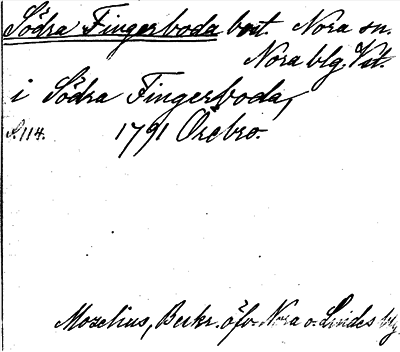 Södra Fingerboda by. Nora sn.
Nora blg. Vstl.
i Södra Fingerboda,
S. 114. 1791 Örebro.
Mozelius, Beskr. öfv. Nora o. Lindes blg